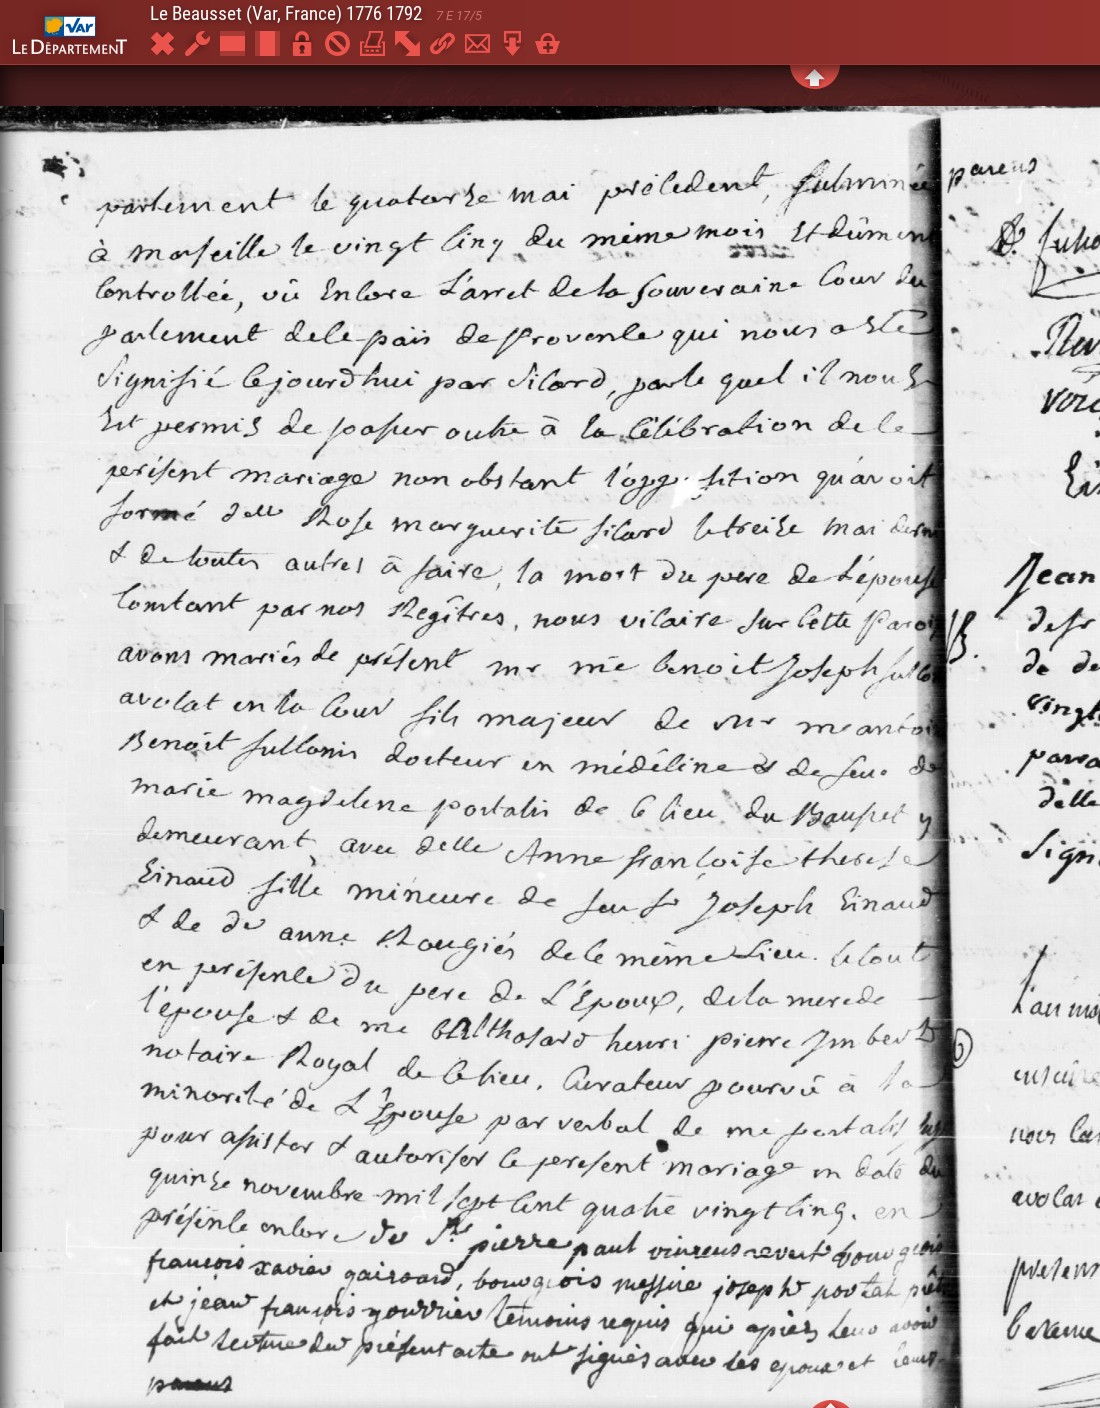 Le Beausset (Var, France) 1776 1792 7 E 17/5
VAR
LE DÉPARTEMENT
parlement le quatorze mai précédent, fulminée
à marseille le vingt cinq du même mois Et dûment
Controllée, vû Encore L'arret de la Souveraine Cour du
parlement de ce païs de provence qui nous a Eté
Signifié cejourdhui par Sicard, par le quel il nous
Est permis de passer outre à la Célébration de ce
present mariage non obstant l'opposition qu'avoit
formé delle Rose marguerite sicard le treize mai dern
& de toutes autres à faire, la mort du pere de L'épouse
Constant par nos Regîtres, nous vicaire sur cette Paroi
avons mariés de présent mr me benoit Joseph
avocat en la Cour fils majeur de mr me antoi
Benoit docteur en médécine & de feue de
marie magdelene portalis de ce lieu du Bausset y
demeurant, avec delle Anne françoise therese
Einaud fille mineure de feu sr Joseph Einaud
& de de anne Rougiés de ce même Lieu. le tout
en présence du pere de L'Epoux, de la mere de
l'épouse & de me balthasard henri pierre Imbert
notaire Royal de ce lieu. Curateur pourvû à la
minorité de L'Epouse par verbal de me portalis
pour assister & autoriser le present mariage en date du
quinze novembre mil sept cent quatre vingt cinq. en
présence encore de Sr pierre paul vincens revest bourgeois
françois xavier gairoard, bourgeois messire joseph portalis
et jean françois temoins requis qui après leur avoir
fait lecture du présent acte ont signés avec les epoux et leurs
parens
parens
Jean
de
de de
vingt
delle
Sign
L'an
nous
avocat